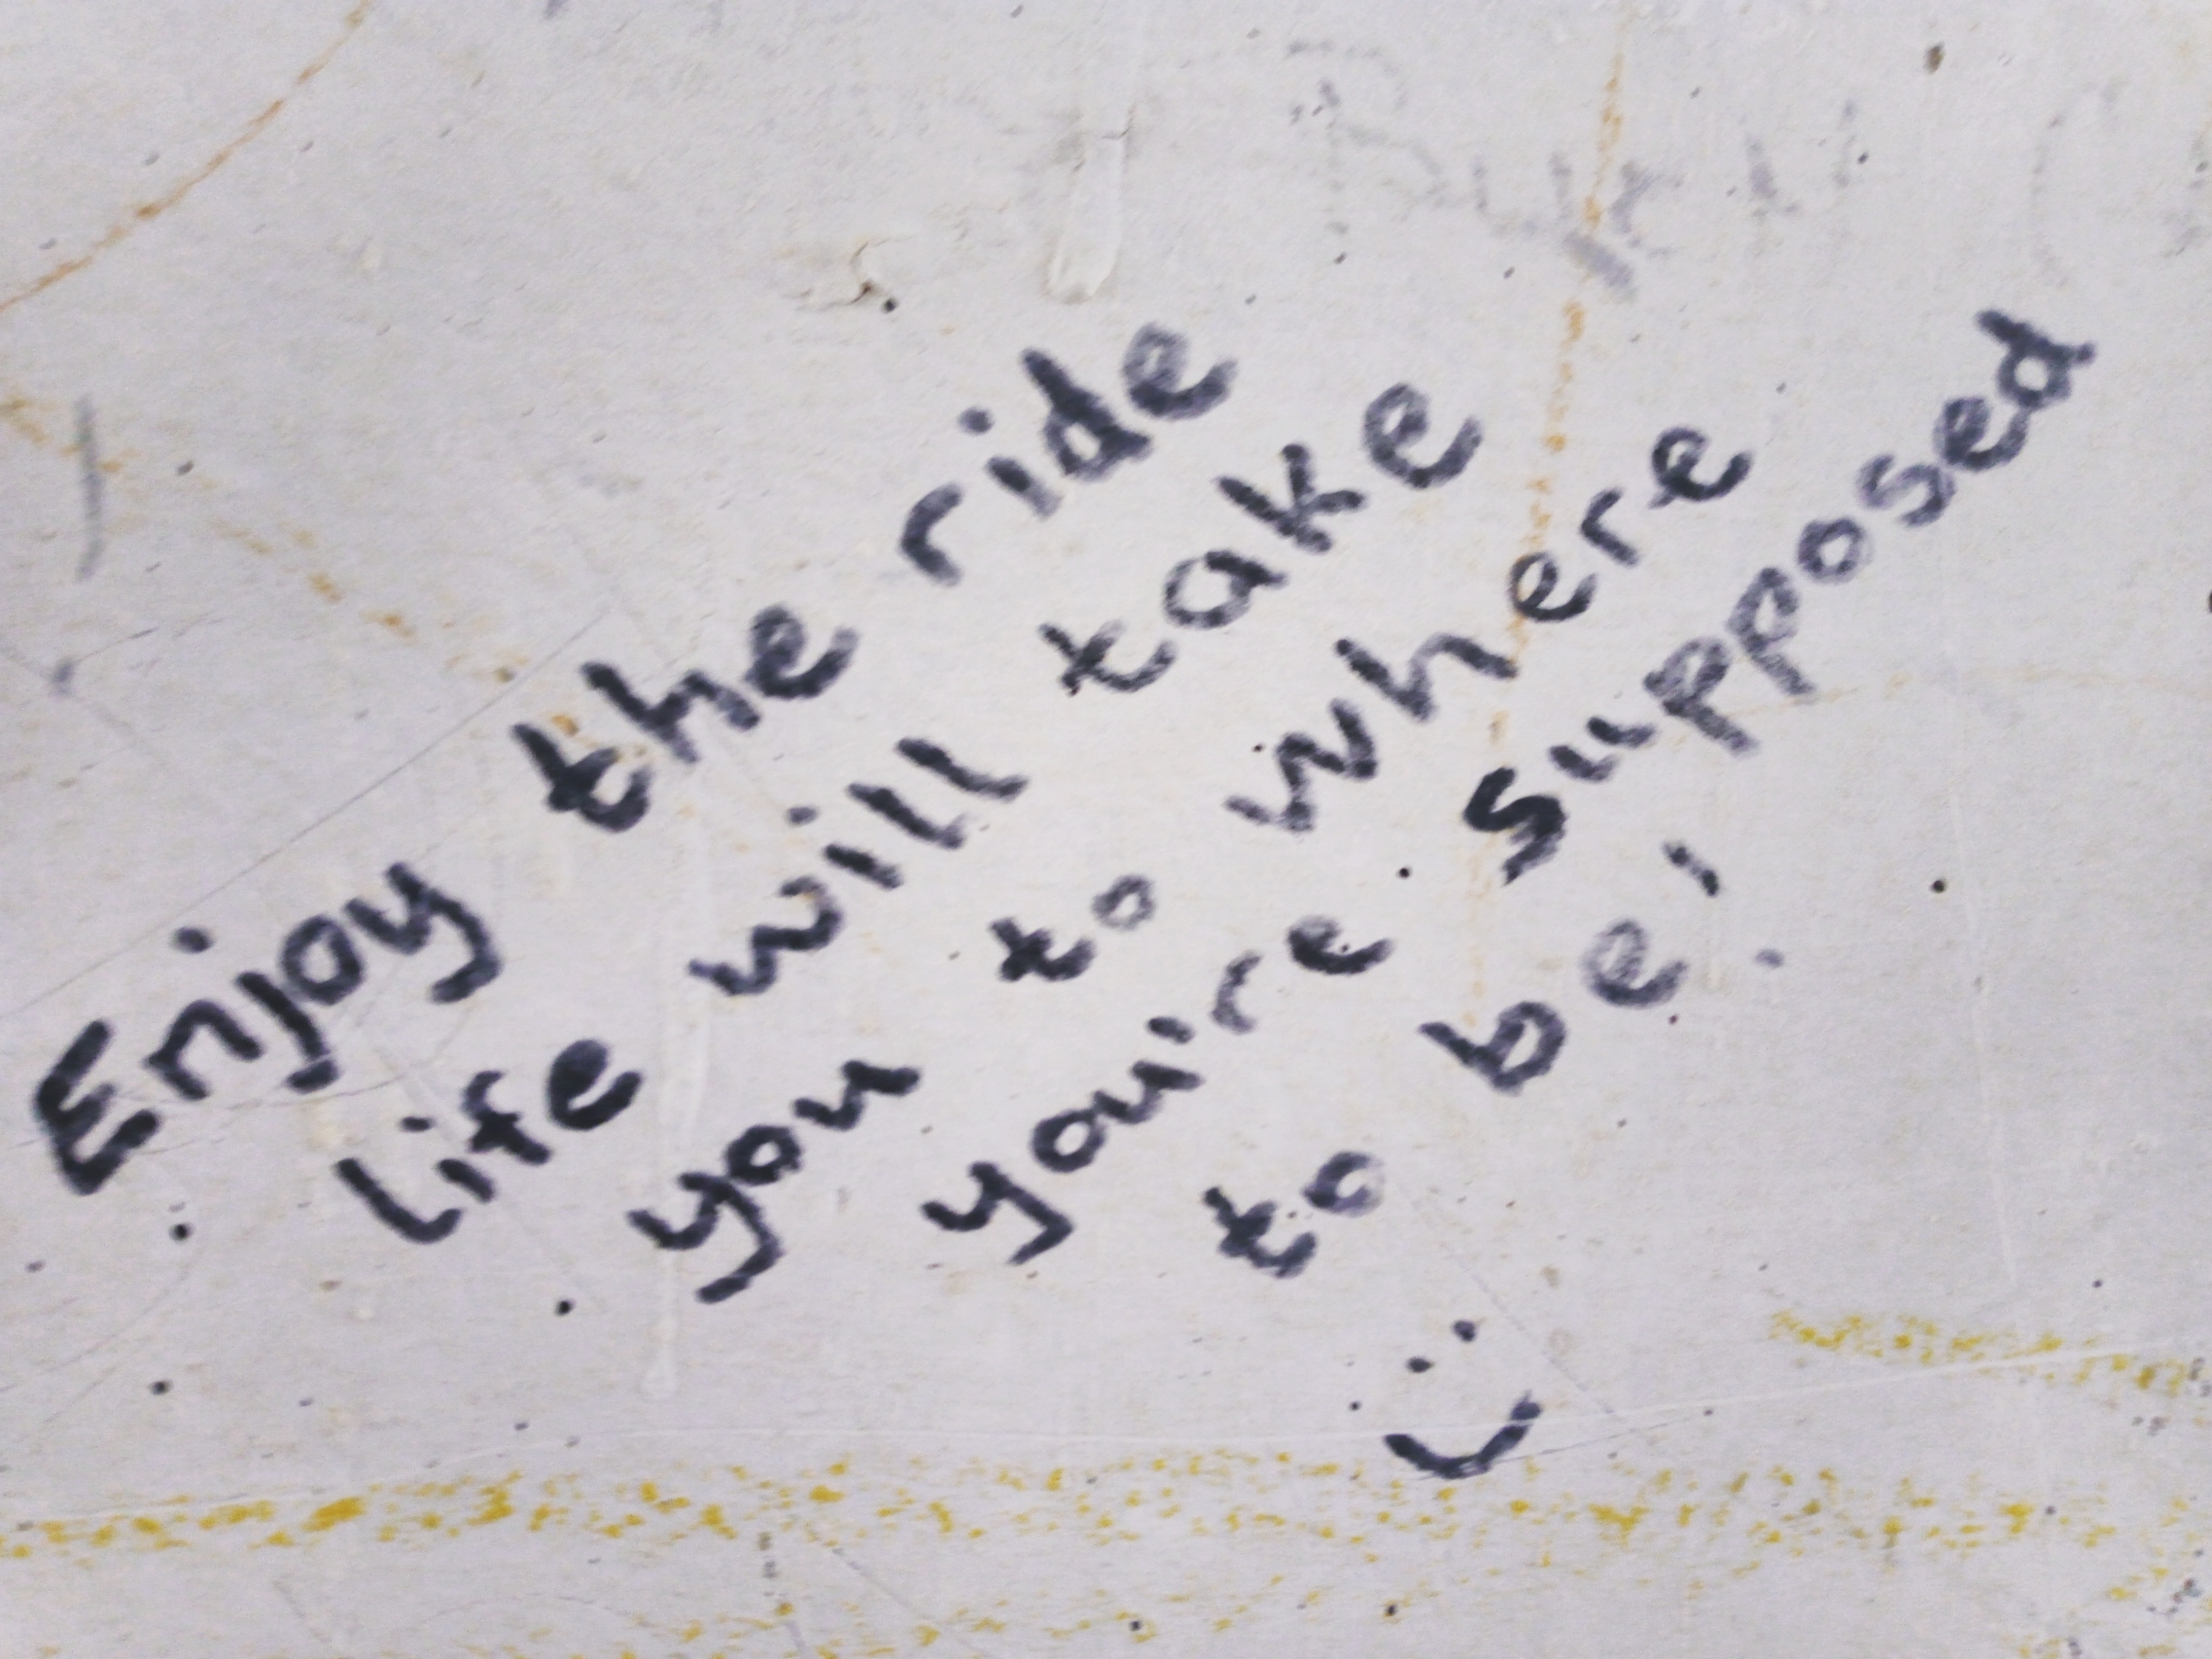 Enjoy the ride
life will take
you to where
you're supposed
to be!
:)